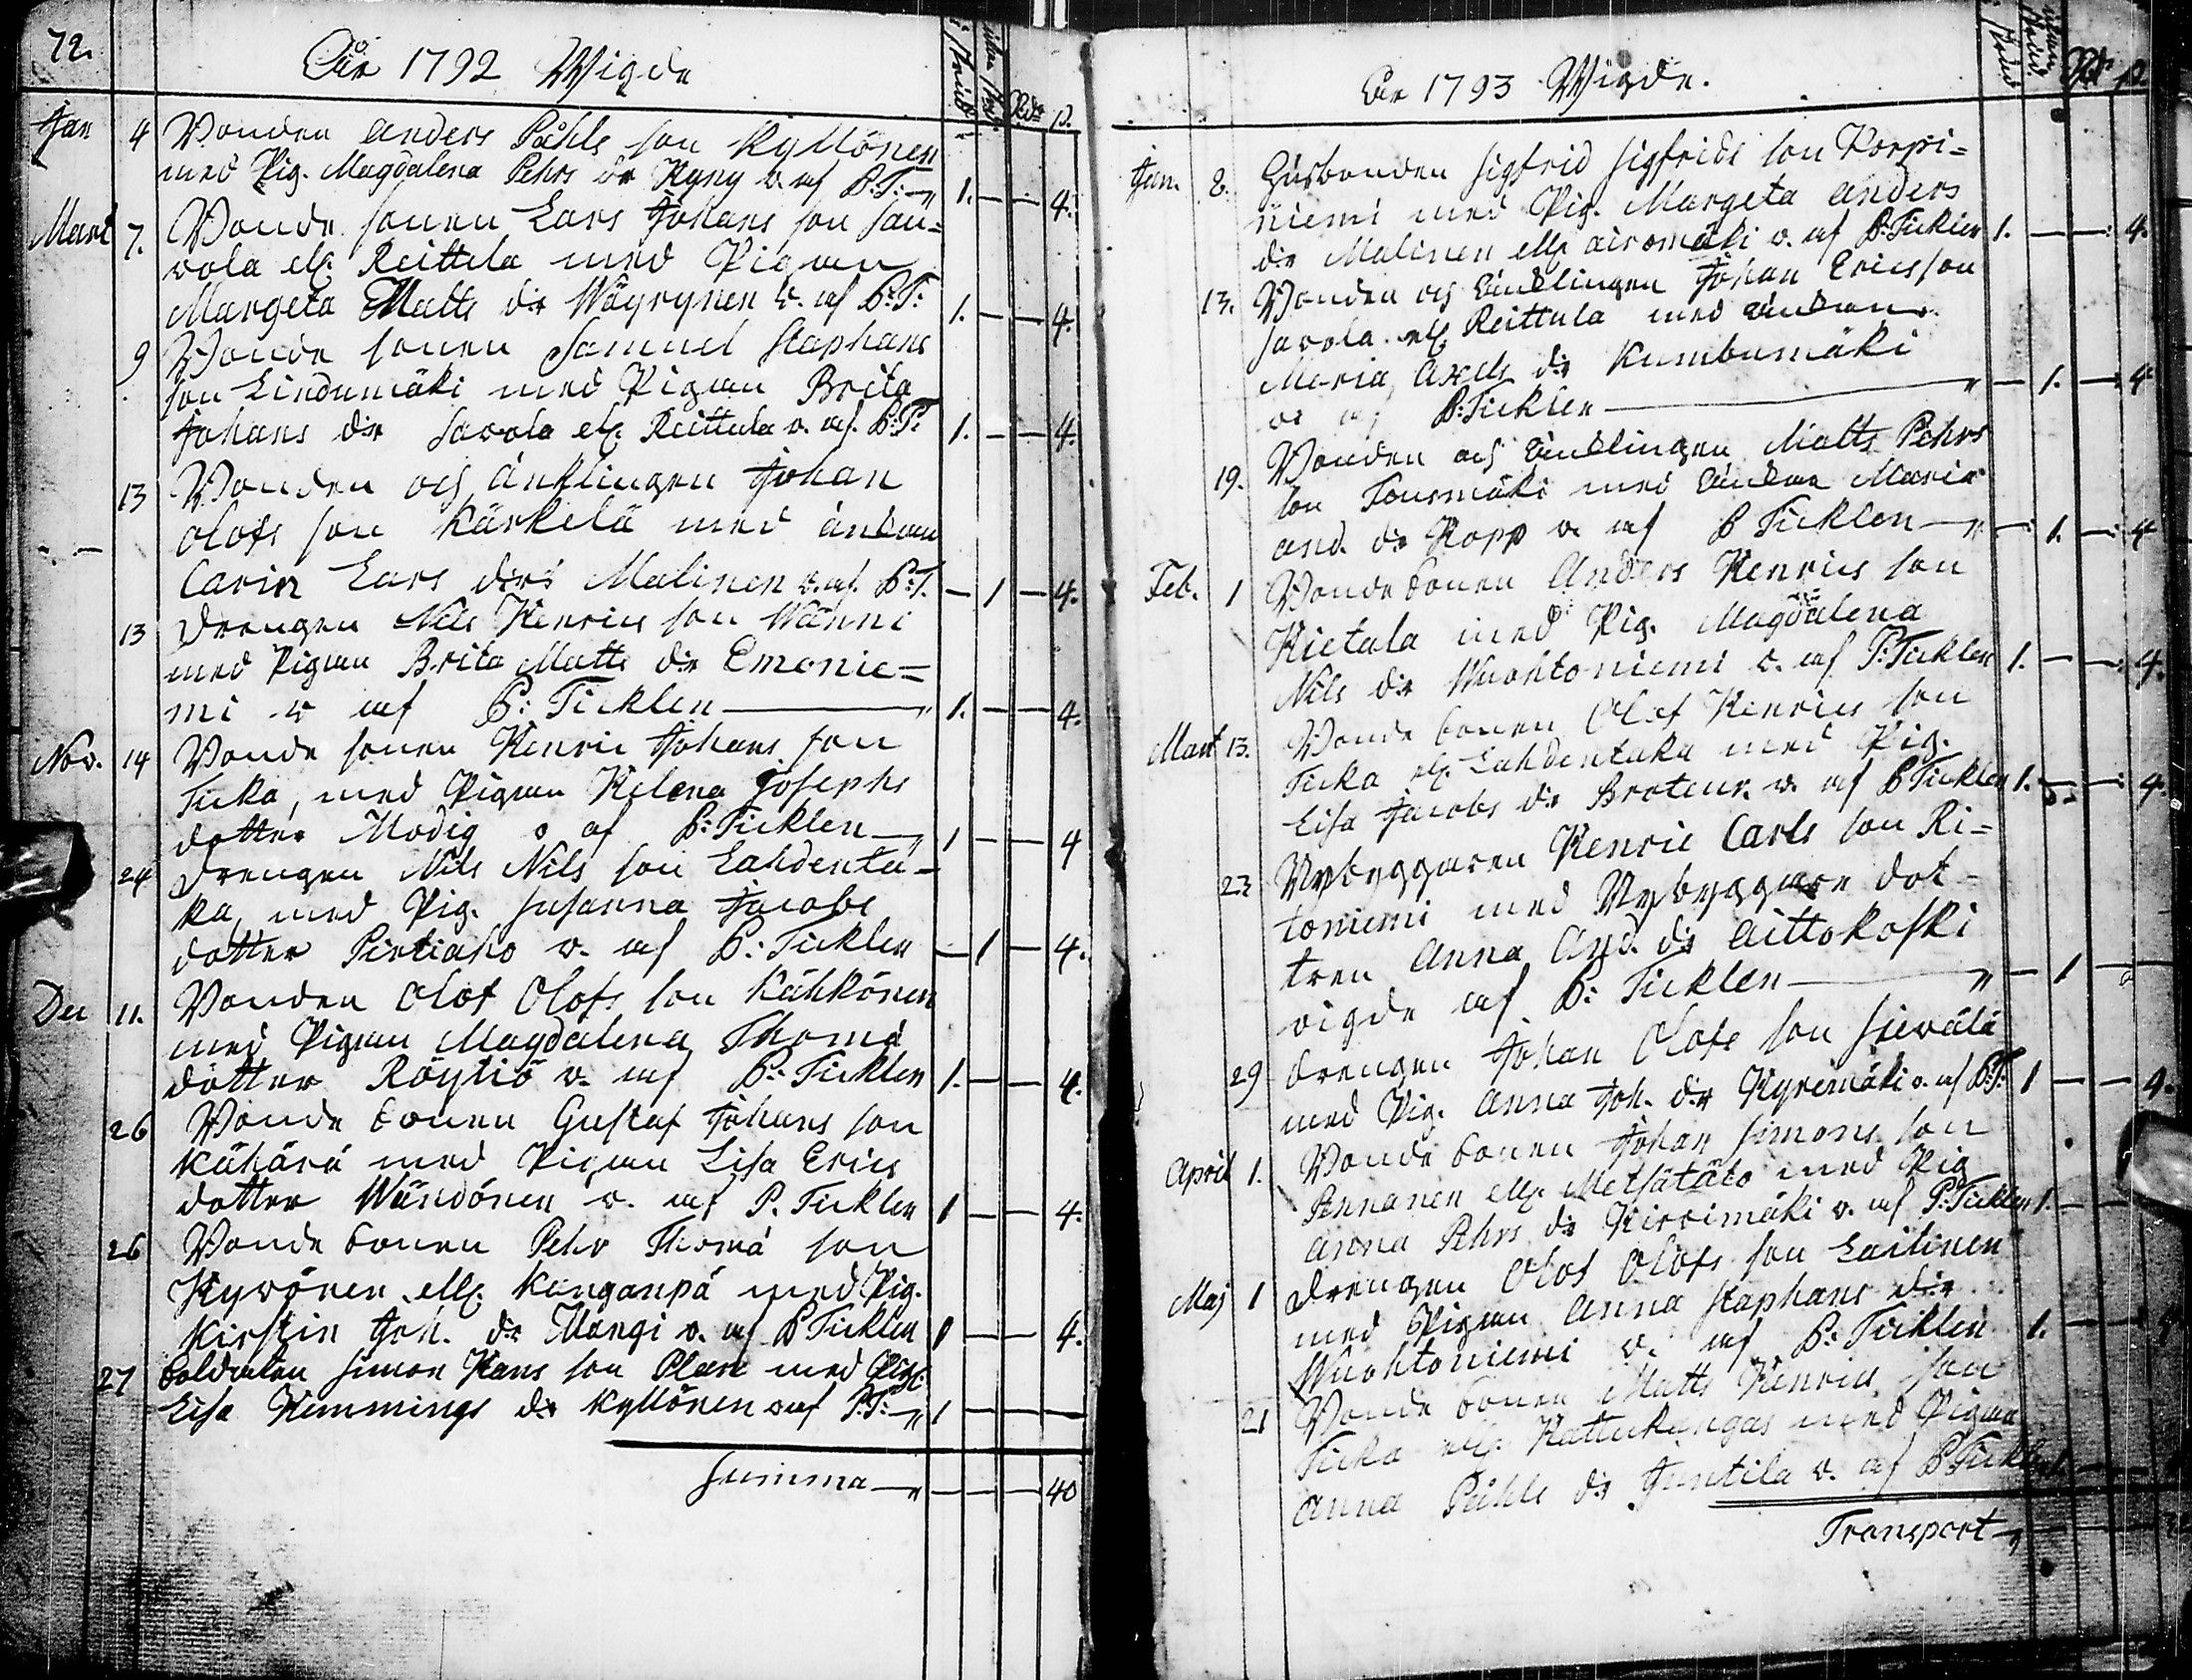 72.
År 1792 Wigde
Rdr p.
Jan 4 Bonden Anders Påhls son Kyllönen
med Pig. Magdalena Pehrs dr Kyny v. af P: T: 1. — — 4.
Mart 7. Bonde sonen Lars Johans son Sau=
vola ell. Reittula med Pigan
Margeta Matts dr Wäyrynen v. af P: T: 1. — — 4.
9 Bonde sonen Samuel Staphans
son Lindumäki med Pigan Brita
Johans dr Savola ell. Reittula v. af. P: T: 1. — — 4.
13 Bonden och änklingen Johan
Olofs son Kärkelä med änkan
Carin Lars dr Malinen v. af. P: T. — 1 — 4.
13 Drengen Nils Henrics son Wänni
med Pigan Brita Matts dr Emonie=
mi v af P: Ticklen — 1. — — 4.
Nov. 14 Bonde sonen Henric Johans son
Ticka, med Pigan Helena Josephs
dotter Modig v af P: Ticklen — 1 — — 4
24 Drengen Nils Nils son Lahdenta-
ka, med Pig. Susanna Jacobs
dotter Pirtiaho v. af P: Ticklen — 1 — 4.
Dec 11. Bonden Olof Olofs son Kähkönen
med Pigan Magdalena Thomæ
dotter Röytiö v. af P: Ticklen 1. — — 4.
26 Bonde sonen Gustaf Johans son
Kähärä med Pigan Lisa Erics
dotter Wändönen v. af P. Ticklen 1 — — 4.
26 Bonde sonen Pehr Thomæ son
Hyvönen ell. Kanganpä med Pig.
Kirstin Joh. dr Mångi v. af P Ticklen 1 — — 4.
27 Soldaten Simon Hans son Plan med Pig.
Lisa Hemmings dr Kyllönen v af P: T: — 1 — —
Summa — — — 40
År 1793 Wigde.
p
Jan. 2. Husbonden Sigfrid Sigfrids son Korpi=
niemi med Pig. Margeta Anders
dr Malinen ell. Airomäki v. af P: Ticklen 1. — — 4.
13. Bonden och Encklingen Johan Ericsson
Savola ell. Reittula med änkan
Maria Axels dr Kumbumäki
v af P: Ticklen — — 1. — 4
19. Bonden och Encklingen Matts Pehrs
son Tousmäki med Änkan Maria
And. dr Kopp v. af P Ticklen — — 1. — 4
Feb. 1 Bonde sonen Anders Henrics son
Kietala med Pig. Magdalena
Nils dr Wuohtoniemi v. af P: Ticklen 1. — — 4.
Mart 13. Bonde sonen Olof Henrics son
Ticka ell. Lahdentaka med Pig.
Lisa Jacobs dr Broteur v. af P Ticklen 1. — — 4.
23 Nybyggaren Henric Carls son Ri=
toniemi med Nybyggare dot-
tren Anna And. dr Aittokoski
vigde af P: Ticklen — — 1 —
29 Drengen Johan Olofs son Sievälä
med Pig. Anna Joh. dr Kyrömäki v. af P: T: 1 — — 4.
April 1. Bonde sonen Johan Simons son
Pennanen ell. Metsätäto med Pig
Anna Pehrs dr Kirrimäki v. af P: Ticklen 1. —
Maj 1 Drengen Olof Olofs son Laitinen
med Pigan Anna Staphans dr
Wuohtoniemi v. af P: Ticklen 1. —
21 Bonde sonen Matts Henrics son
Ticka ell. Kattukangas med Pigan
Anna Påhls dr Juntila v. af P Ticklen
Transport —